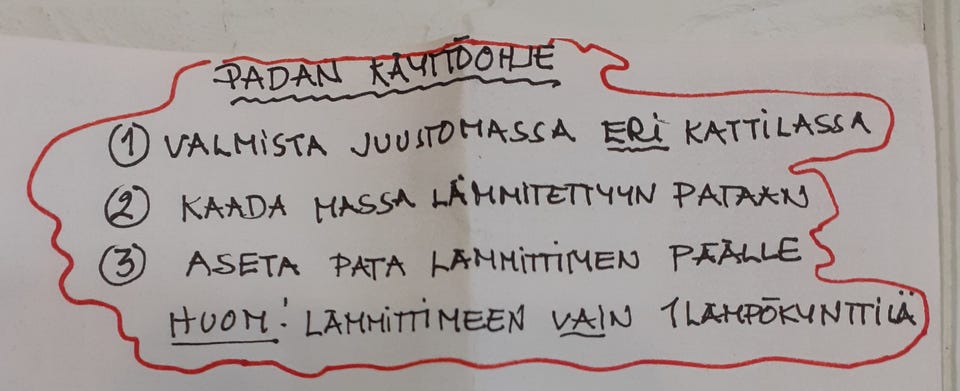 PADAN KÄYTTÖOHJE
① VALMISTA JUUSTOMASSA ERI KATTILASSA
② KAADA MASSA LÄMMITETTYYN PATAAN
③ ASETA PATA LÄMMITTIMEN PÄÄLLE
HUOM! LÄMMITTIMEEN VAIN 1 LÄMPÖKYNTTILÄ